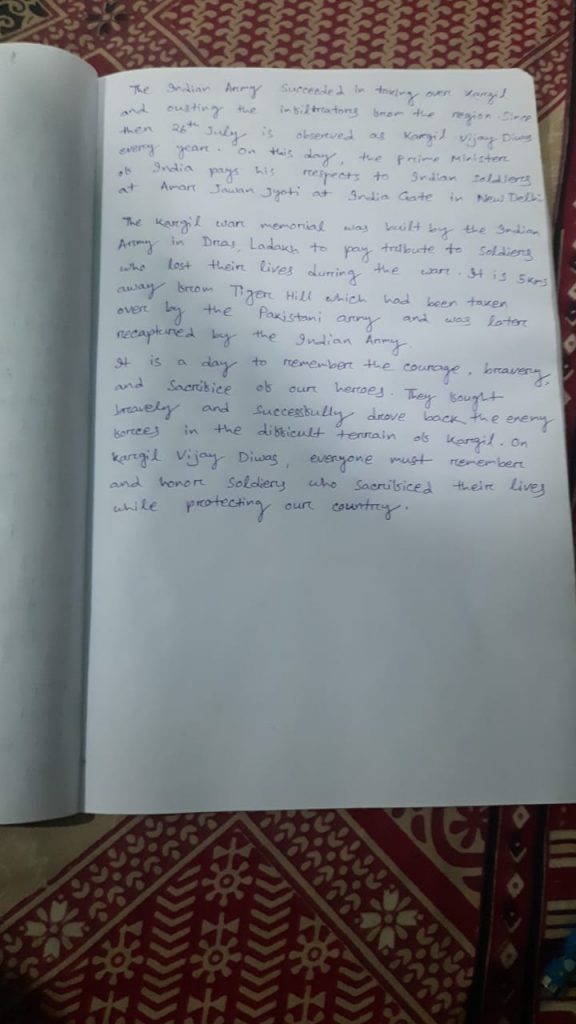 The Indian Army Succeeded in taking over Kargil
and ousting the infiltrators from the region. Since
then 26th July is observed as Kargil Vijay Diwas
every year. On this day, the Prime Minister
of India pays his respects to Indian soldiers
at Amar Jawan Jyoti at India Gate in New Delhi.
The Kargil war memorial was built by the Indian
Army in Dras, Ladakh to pay tribute to soldiers
who lost their lives during the war. It is 5kms
away from Tiger Hill which had been taken
over by the Pakistani army and was later
recaptured by the Indian Army.
It is a day to remember the courage, bravery,
and Sacrifice of our heroes. They fought
bravely and successfully drove back the enemy
forces in the difficult terrain of Kargil. On
Kargil Vijay Diwas, everyone must remember
and honor Soldiers who sacrificed their lives
while protecting our country.